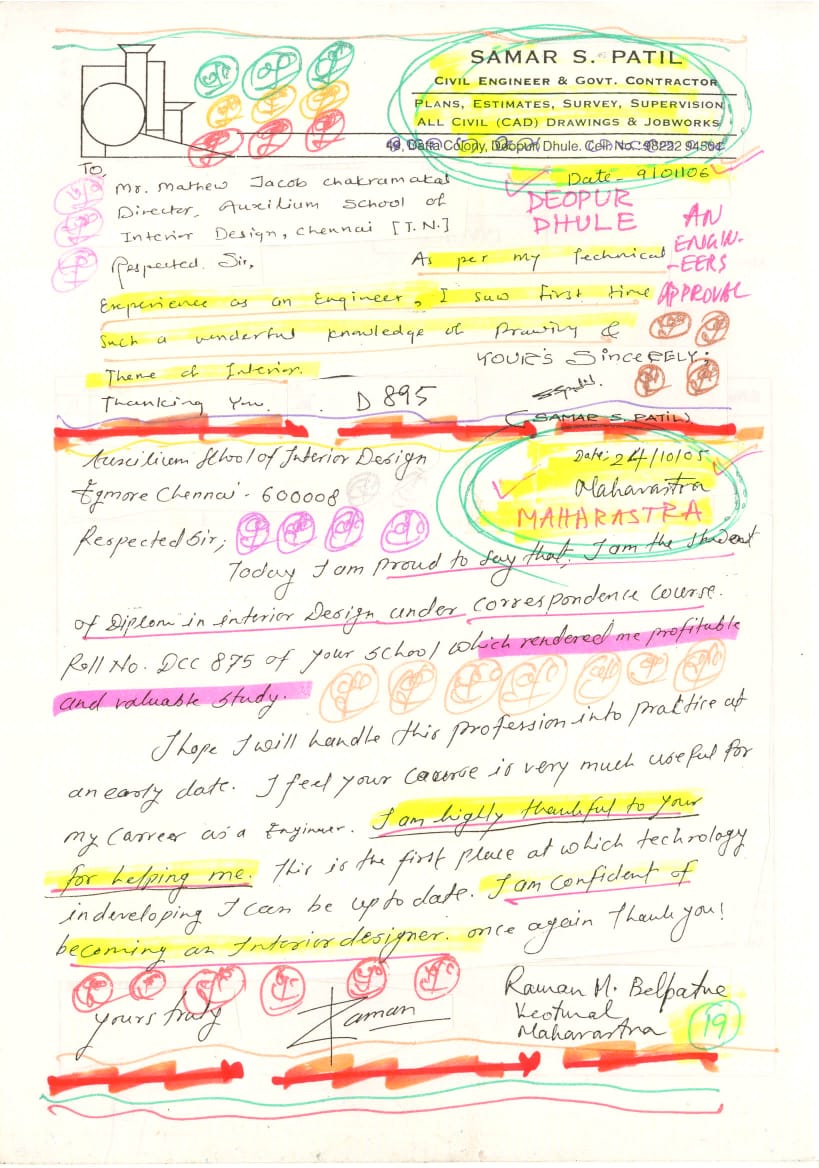 SAMAR S. PATIL
CIVIL ENGINEER & GOVT. CONTRACTOR
PLANS, ESTIMATES, SURVEY, SUPERVISION
ALL CIVIL (CAD) DRAWINGS & JOBWORKS
Colony, Deopur, Dhule. Cell No.: 98232
To,
Date- 9/01/06
Mr. Mathew Jacob chakramakal
DEOPUR
Director, Auxilium School of
DHULE
AN
Interior Design, Chennai [T.N.]
ENGIN-
Respected. Sir,
As per my Technical
-EERS
Experience as an Engineer, I saw first time
APPROVAL
Such a wenderful knowledge of Drawing &
YOUR'S SINCERELY;
Theme of Interior.
Thanking You.
D 895
(SAMAR S. PATIL)
Auxilium School of Interior Design
Date: 24/10/05
Egmore Chennai - 600008
Maharastra
MAHARASTRA
Respected Sir;
Today I am proud to say that, I am the student
of Diplom in interior Design under correspondence course.
Roll No. DCC 875 of your school which rendered me profitable
and valuable study.
I hope I will handle this profession into praktice at
an early date. I feel your course is very much useful for
my Carreer as a Enginner. I am highly thankful to your
for helping me. This is the first place at which technology
in developing I can be up to date. I am confident of
becoming an Interior designer. once again Thank you!
Yours truly
Raman
Raman M. Belpatne
Maharastra
19